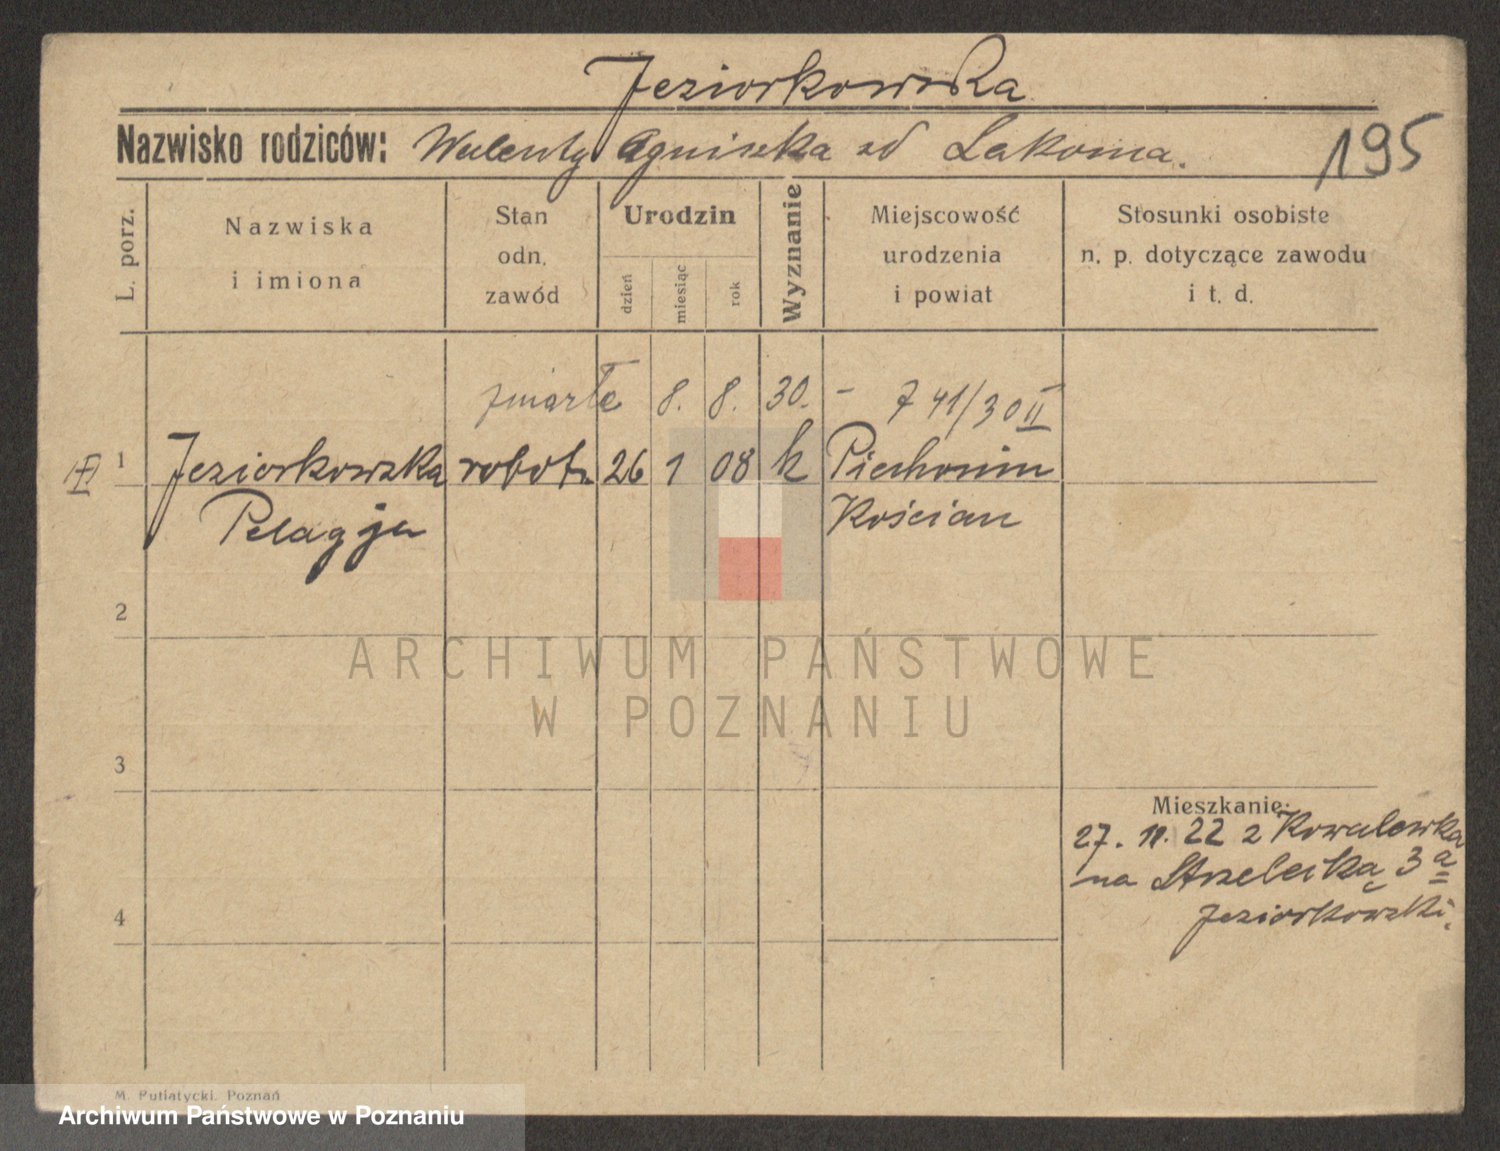 Jeziorkowska
Nazwisko rodziców: Walenty Agniszka zd Lakoma.
195
L. porz.
Nazwiska
i imiona
Stan
odn.
zawód
Urodzin
dzień
miesiąc
rok
Wyznanie
Miejscowość
urodzenia
i powiat
Stosunki osobiste
n. p. dotyczące zawodu
i t. d.
zmarła 8. 8. 30. - 741/30 II
1 Jeziorkowska robotn. 26 1 08 k Piechonin
Pelagja Kościan
2
ARCHIWUM PAŃSTWOWE
W POZNANIU
3
Mieszkanie:
27. 11. 22 z Kowalewka
na Strzelecką 3a
Jeziorkowski.
4
M. Putiatycki. Poznań
Archiwum Państwowe w Poznaniu